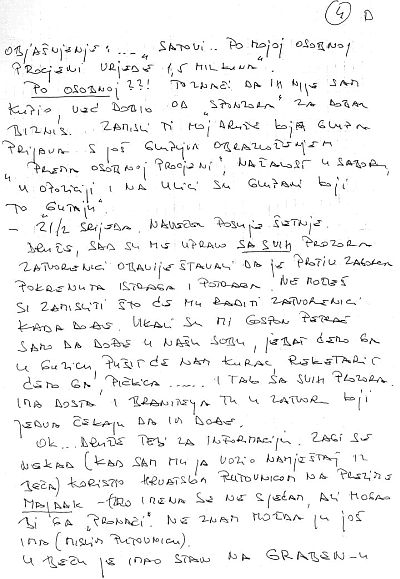 4 D
OBJAŠNJENJE: ... "SATOVI.. PO MOJOJ OSOBNOJ
PROCJENI VRIJEDE 1,5 MIL KUNA".
PO OSOBNOJ ??! TO ZNAČI DA IH NIJE SAM
KUPIO, VEĆ DOBIO OD "SPONZORA" ZA DOBAR
BIZNIS. ZAMISLI TI MOJ DRUŽE KOJA GLUPA
PRIJAVA S JOŠ GLUPLJIM OBRAZLOŽENJEM
"PREMA OSOBNOJ PROCJENI", NAŽALOST U SABORU,
U OPOZICIJI I NA ULICI SU GLUPANI KOJI
TO "GUTAJU".
- 21/2 SRIJEDA, NAVEČER POSLIJE ŠETNJE.
DRUŽE, SAD SU ME UPRAVO SA SVIH PROZORA
ZATVORENICI OBAVIJEŠTAVALI DA JE PROTIV ZAGORCA
POKRENUTA ISTRAGA I POTRAGA. NE MOŽEŠ
SI ZAMISLITI ŠTO ĆE MU RADITI ZATVORENICI
KADA DOĐE. VIKALI SU MI GOSPON PETRAČ
SAMO DA DOĐE U NAŠU SOBU, JEBAT ĆEMO GA
U GUZICU, PUŠIT ĆE NAM KURAC, REKETARIT
ĆEMO GA, PIČKICA ...... I TAKO SA SVIH PROZORA.
IMA DOSTA I BRANITELJA TU U ZATVORU KOJI
JEDVA ČEKAJU DA IH DOĐE.
OK... DRUŽE TEBI ZA INFORMACIJU. ZAGI JE
NEKAD (KAD SAM MU JA VOZIO NAMJEŠTAJ IZ
BEČA) KORISTIO HRVATSKU PUTOVNICU NA PREZIME
MAJDAK - IMENA SE NE SJEĆAM, ALI MOGAO
BI GA "PRONAĆI". NE ZNAM MOŽDA JU JOŠ
IMA (MISLIM PUTOVNICU).
U BEČU JE IMAO STAN NA GRABEN-U